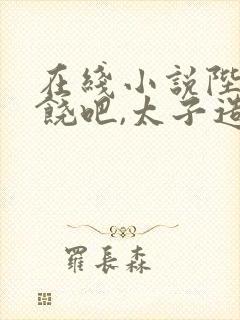 在綫小説陛
饒吧,太子造
羅長森